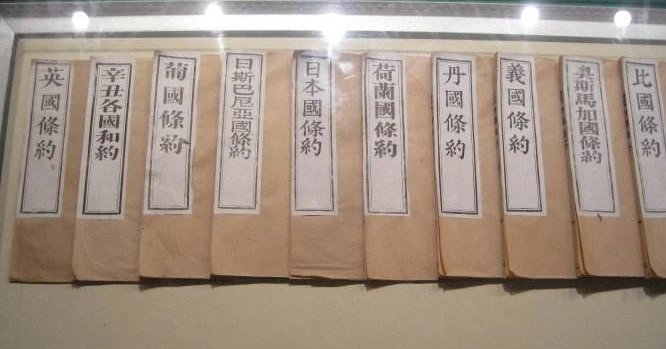 英國條約
辛丑各國和約
葡國條約
日斯巴尼亞國條約
日本國條約
荷蘭國條約
丹國條約
義國條約
奧斯馬加國條約
比國條約